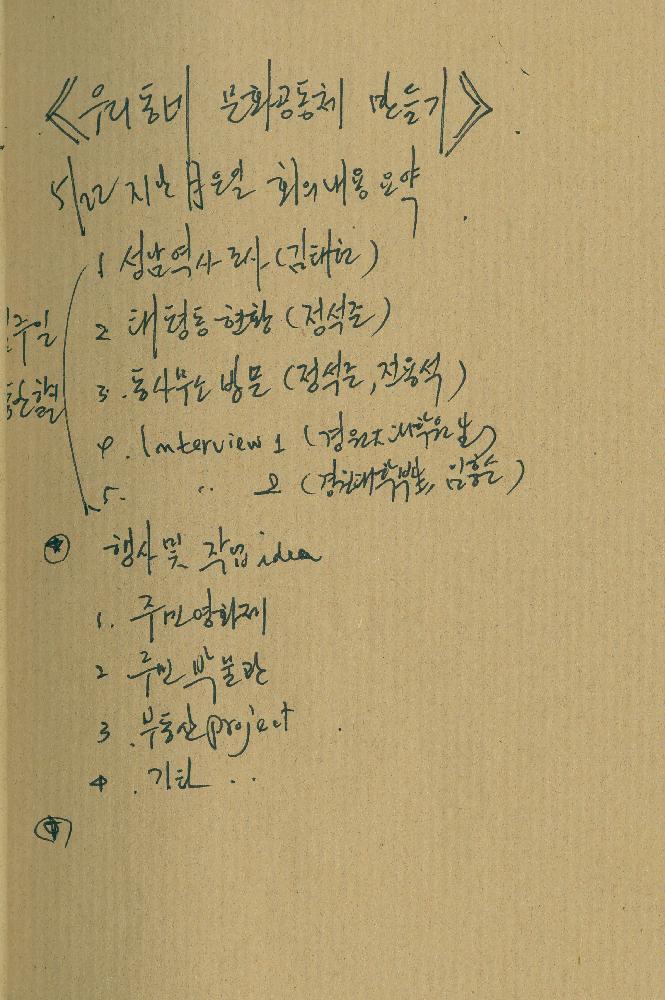 《우리동네 문화공동체 만들기》
5/22 지난 月요일 회의내용 요약
1 성남역사 조사 (김태헌)
2 태평동 현황 (정석준)
3. 동사무소 방문 (정석준, 전용석)
4. Interview 1 (경원大 대학원生)
5. 〃 2 (경원대학부生, 임흥순)
주일
㊉ 행사 및 작업 idea
1. 주민영화제
2 주민 박물관
3. 부동산 project
4. 기타 ..